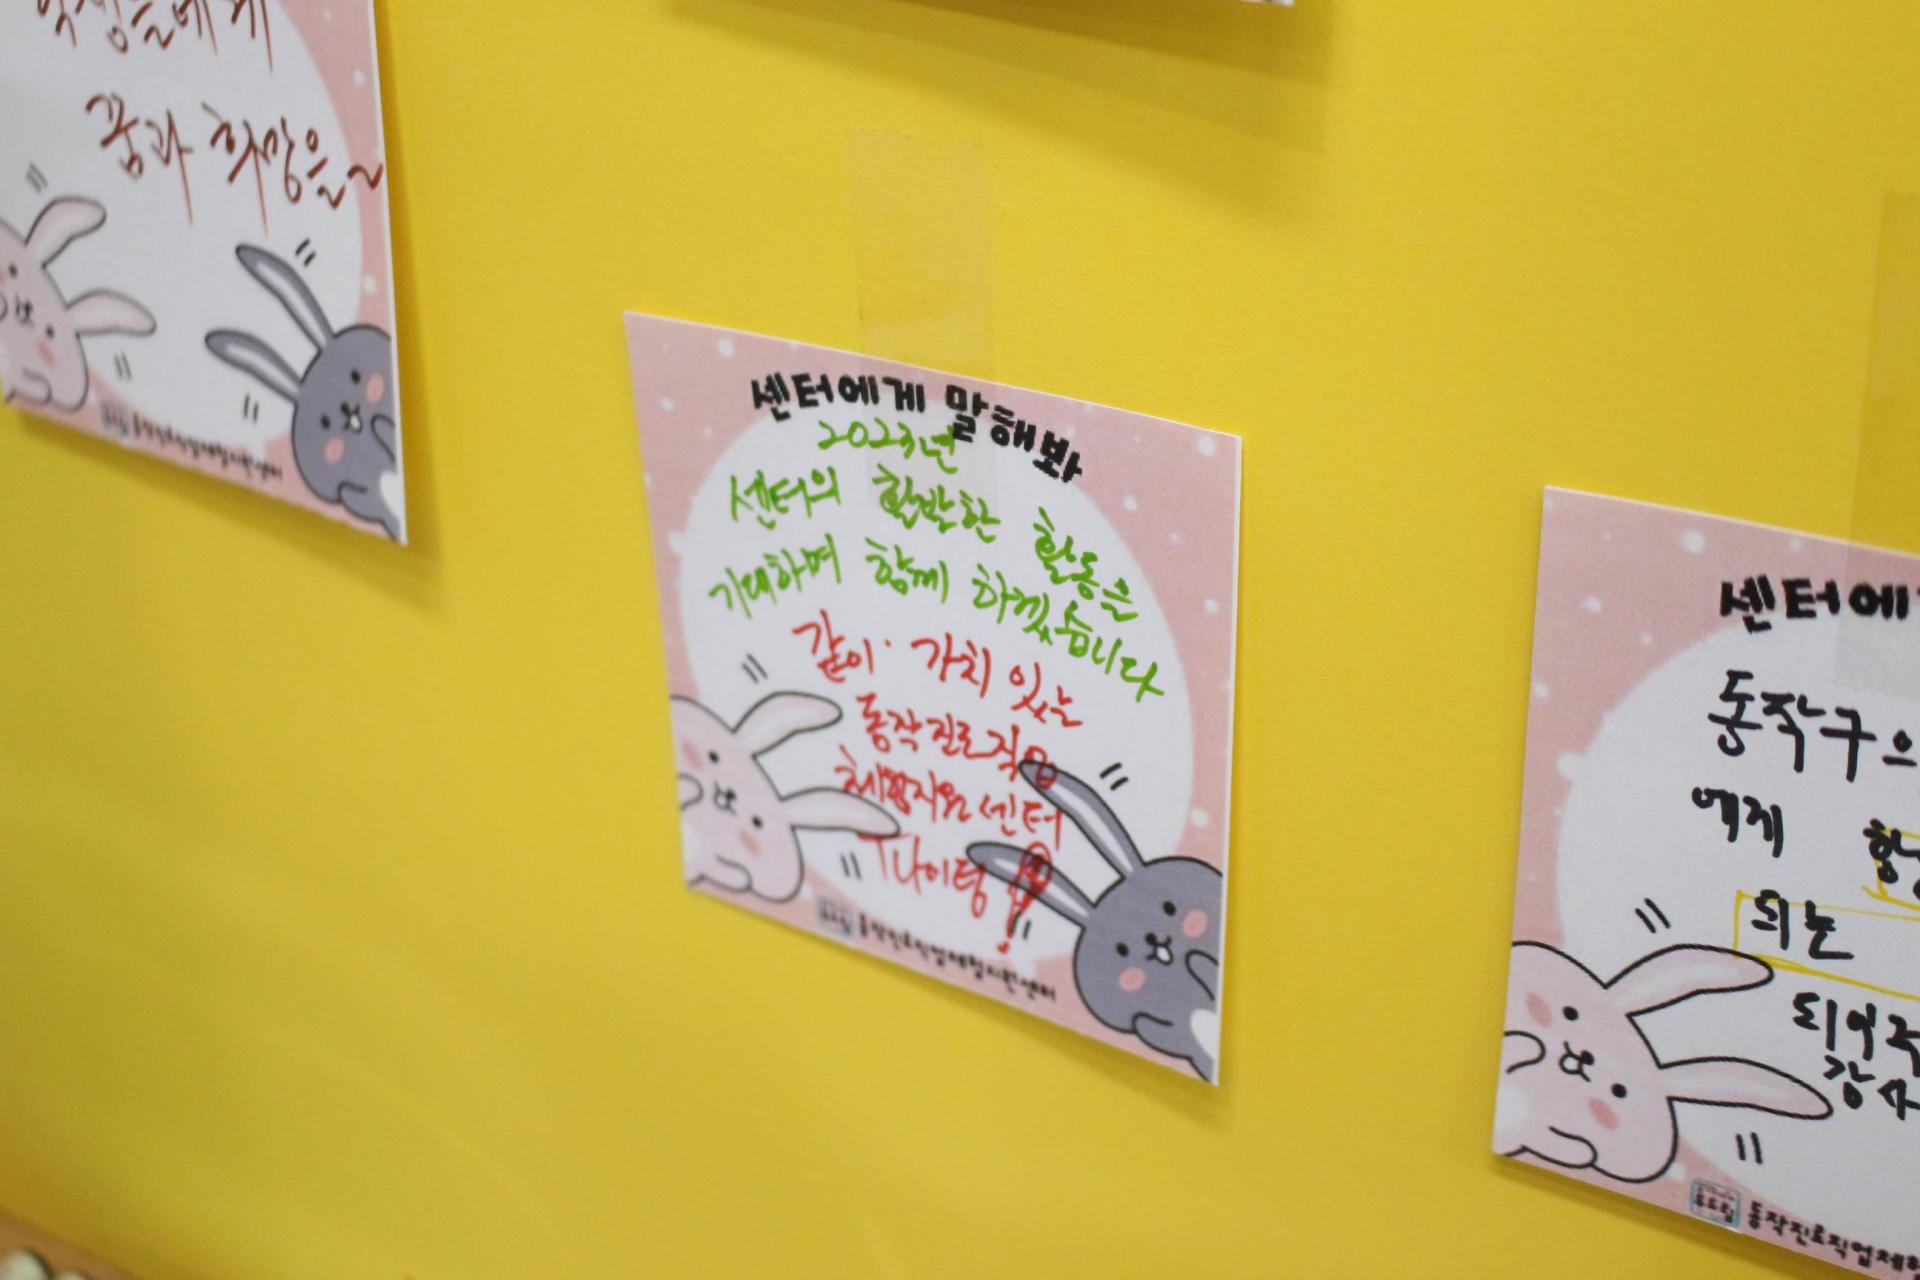 학생들에게
꿈과 희망을~
동작진로직업체험지원센터
센터에게 말해봐
2023년
센터의 활발한 활동을
기대하며 함께 하겠습니다
같이· 가치 있는
동작진로직업
체험지원센터
T나이팅!
동작진로직업체험지원센터
센터에
동작구의
에게
되는
되어주
감사
동작진로직업체험